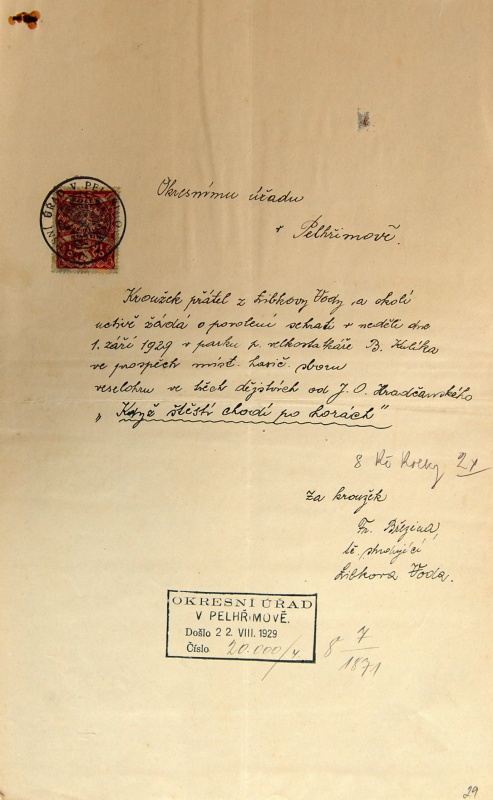 Okresnímu úřadu
v Pelhřimově.
Kroužek přátel z Libkovy Vody a okolí
uctivě žádá o povolení sehrati v neděli dne
1. září 1929 v parku p. velkostatkáře B. Kulíka
ve prospěch míst. hasič. sboru
veselohru ve třech dějstvích od J. O. Hradčanského
„Když štěstí chodí po horách"
8 Kč Kolky 2x
Za kroužek
Fr. Březina,
Libkova Voda.
OKRESNÍ ÚŘAD
V PELHŘIMOVĚ.
Došlo 22. VIII. 1929
Číslo 20.000/
8 7
1871
29